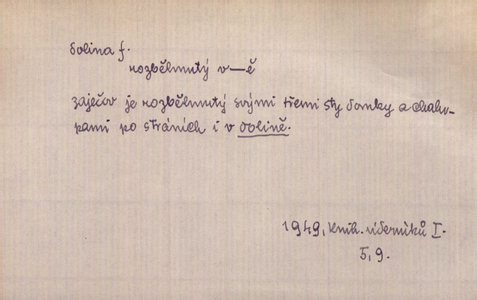 dolina f.
rozbělmutý v—ě
zaječov je rozbělmutý svými třemi sty domky a chalu-
pami po stráních i v dolině.
1949, Knih. úderníků I.
5, 9.